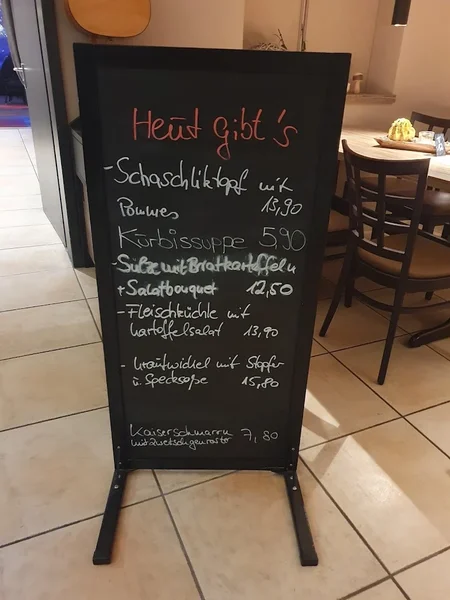 Heut gibt's
- Schaschliktopf mit
Pommes 13,90
Kürbissuppe 5,90
Sülze mit Bratkartoffeln
+ Salatbouquet 12,50
- Fleischküchle mit
Kartoffelsalat 13,90
- Krautwickel mit Stopfer
u. Specksoße 15,80
Kaiserschmarrn 7,80
mit Zwetschgenröster